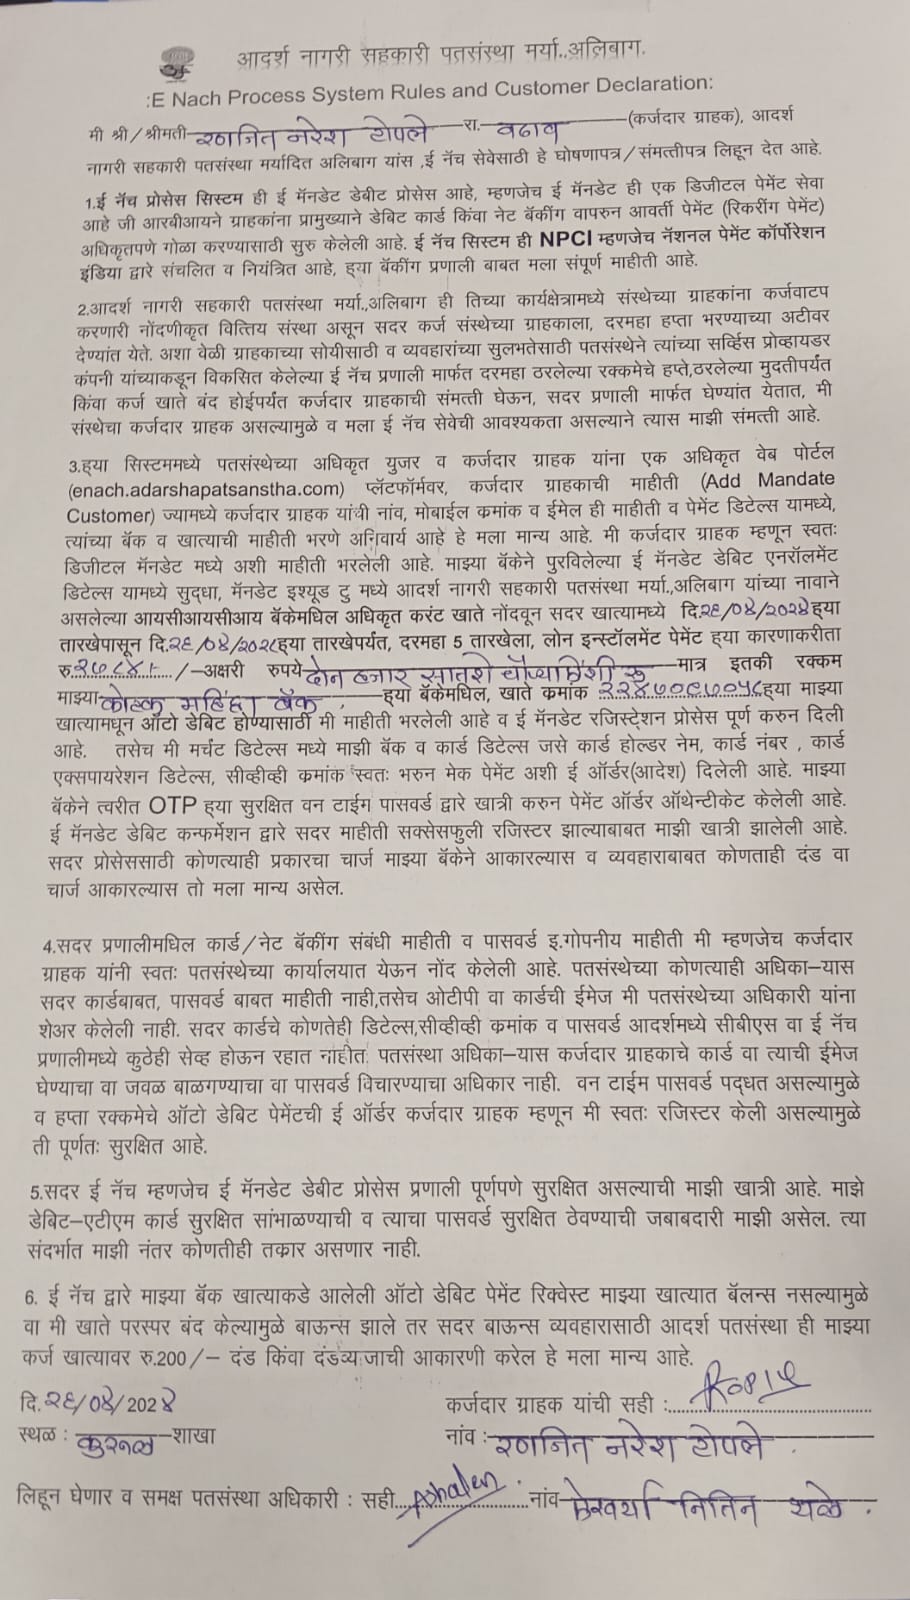 आदर्श नागरी सहकारी पतसंस्था मर्या..अलिबाग.
:E Nach Process System Rules and Customer Declaration:
मी श्री/श्रीमती रणजित नरेश टोपले रा. वढाव (कर्जदार ग्राहक), आदर्श
नागरी सहकारी पतसंस्था मर्यादित अलिबाग यांस ,ई नॅच सेवेसाठी हे घोषणापत्र/संमत्तीपत्र लिहून देत आहे.
1.ई नॅच प्रोसेस सिस्टम ही ई मॅनडेट डेबीट प्रोसेस आहे, म्हणजेच ई मॅनडेट ही एक डिजीटल पेमेंट सेवा
आहे जी आरबीआयने ग्राहकांना प्रामुख्याने डेबिट कार्ड किंवा नेट बॅकींग वापरुन आवर्ती पेमेंट (रिकरींग पेमेंट)
अधिकृतपणे गोळा करण्यासाठी सुरु केलेली आहे. ई नॅच सिस्टम ही NPCI म्हणजेच नॅशनल पेमेंट कॉर्पोरेशन
इंडिया द्वारे संचलित व नियंत्रित आहे, ह्या बॅकींग प्रणाली बाबत मला संपूर्ण माहीती आहे.
2.आदर्श नागरी सहकारी पतसंस्था मर्या.,अलिबाग ही तिच्या कार्यक्षेत्रामध्ये संस्थेच्या ग्राहकांना कर्जवाटप
करणारी नोंदणीकृत वित्तिय संस्था असून सदर कर्ज संस्थेच्या ग्राहकाला, दरमहा हप्ता भरण्याच्या अटीवर
देण्यांत येते. अशा वेळी ग्राहकाच्या सोयीसाठी व व्यवहारांच्या सुलभतेसाठी पतसंस्थेने त्यांच्या सर्व्हिस प्रोव्हायडर
कंपनी यांच्याकडून विकसित केलेल्या ई नॅच प्रणाली मार्फत दरमहा ठरलेल्या रक्कमेचे हप्ते,ठरलेल्या मुदतीपर्यंत
किंवा कर्ज खाते बंद होईपर्यंत कर्जदार ग्राहकाची संमत्ती घेऊन, सदर प्रणाली मार्फत घेण्यांत येतात, मी
संस्थेचा कर्जदार ग्राहक असल्यामुळे व मला ई नॅच सेवेची आवश्यकता असल्याने त्यास माझी संमत्ती आहे.
3.ह्या सिस्टममध्ये पतसंस्थेच्या अधिकृत युजर व कर्जदार ग्राहक यांना एक अधिकृत वेब पोर्टल
(enach.adarshapatsanstha.com) प्लॅटफॉर्मवर, कर्जदार ग्राहकाची माहीती (Add Mandate
Customer) ज्यामध्ये कर्जदार ग्राहक यांची नांव, मोबाईल क्रमांक व ईमेल ही माहीती व पेमेंट डिटेल्स यामध्ये,
त्यांच्या बॅक व खात्याची माहीती भरणे अनिवार्य आहे हे मला मान्य आहे. मी कर्जदार ग्राहक म्हणून स्वतः
डिजीटल मॅनडेट मध्ये अशी माहीती भरलेली आहे. माझ्या बॅकेने पुरविलेल्या ई मॅनडेट डेबिट एनरॉलमेंट
डिटेल्स यामध्ये सुद्धा, मॅनडेट इश्यूड टु मध्ये आदर्श नागरी सहकारी पतसंस्था मर्या.,अलिबाग यांच्या नावाने
असलेल्या आयसीआयसीआय बॅकेमधिल अधिकृत करंट खाते नोंदवून सदर खात्यामध्ये दि.२६/०४/२०२४ह्या
तारखेपासून दि.२६/०४/२०२८ह्या तारखेपर्यंत, दरमहा 5 तारखेला, लोन इन्स्टॉलमेंट पेमेंट ह्या कारणाकरीता
रु.२७८४।- /-अक्षरी रुपये दोन हजार सातशे चौऱ्यांशी रु मात्र इतकी रक्कम
माझ्या कोटक महिंद्रा बँक ह्या बॅकेमधिल, खाते क्रमांक २२४७०८७०५८ह्या माझ्या
खात्यामधून ऑटो डेबिट होण्यासाठी मी माहीती भरलेली आहे व ई मॅनडेट रजिस्टेशन प्रोसेस पूर्ण करुन दिली
आहे. तसेच मी मर्चंट डिटेल्स मध्ये माझी बॅक व कार्ड डिटेल्स जसे कार्ड होल्डर नेम, कार्ड नंबर , कार्ड
एक्सपायरेशन डिटेल्स, सीव्हीव्ही क्रमांक स्वतः भरुन मेक पेमेंट अशी ई ऑर्डर(आदेश) दिलेली आहे. माझ्या
बॅकेने त्वरीत OTP ह्या सुरक्षित वन टाईम पासवर्ड द्वारे खात्री करुन पेमेंट ऑर्डर ऑथेन्टीकेट केलेली आहे.
ई मॅनडेट डेबिट कन्फर्मेशन द्वारे सदर माहीती सक्सेसफुली रजिस्टर झाल्याबाबत माझी खात्री झालेली आहे.
सदर प्रोसेससाठी कोणत्याही प्रकारचा चार्ज माझ्या बॅकेने आकारल्यास व व्यवहाराबाबत कोणताही दंड वा
चार्ज आकारल्यास तो मला मान्य असेल.
4.सदर प्रणालीमधिल कार्ड/नेट बॅकींग संबंधी माहीती व पासवर्ड इ.गोपनीय माहीती मी म्हणजेच कर्जदार
ग्राहक यांनी स्वतः पतसंस्थेच्या कार्यालयात येऊन नोंद केलेली आहे. पतसंस्थेच्या कोणत्याही अधिका–यास
सदर कार्डबाबत, पासवर्ड बाबत माहीती नाही,तसेच ओटीपी वा कार्डची ईमेज मी पतसंस्थेच्या अधिकारी यांना
शेअर केलेली नाही. सदर कार्डचे कोणतेही डिटेल्स,सीव्हीव्ही क्रमांक व पासवर्ड आदर्शमध्ये सीबीएस वा ई नॅच
प्रणालीमध्ये कुठेही सेव्ह होऊन रहात नाहीत. पतसंस्था अधिका–यास कर्जदार ग्राहकाचे कार्ड वा त्याची ईमेज
घेण्याचा वा जवळ बाळगण्याचा वा पासवर्ड विचारण्याचा अधिकार नाही. वन टाईम पासवर्ड पद्धत असल्यामुळे
व हप्ता रक्कमेचे ऑटो डेबिट पेमेंटची ई ऑर्डर कर्जदार ग्राहक म्हणून मी स्वतः रजिस्टर केली असल्यामुळे
ती पूर्णतः सुरक्षित आहे.
5.सदर ई नॅच म्हणजेच ई मॅनडेट डेबीट प्रोसेस प्रणाली पूर्णपणे सुरक्षित असल्याची माझी खात्री आहे. माझे
डेबिट–एटीएम कार्ड सुरक्षित सांभाळण्याची व त्याचा पासवर्ड सुरक्षित ठेवण्याची जबाबदारी माझी असेल. त्या
संदर्भात माझी नंतर कोणतीही तक्रार असणार नाही.
6. ई नॅच द्वारे माझ्या बॅक खात्याकडे आलेली ऑटो डेबिट पेमेंट रिक्वेस्ट माझ्या खात्यात बॅलन्स नसल्यामुळे
वा मी खाते परस्पर बंद केल्यामुळे बाऊन्स झाले तर सदर बाऊन्स व्यवहारासाठी आदर्श पतसंस्था ही माझ्या
कर्ज खात्यावर रु.200/– दंड किंवा दंडव्याजाची आकारणी करेल हे मला मान्य आहे.
दि.२६/०४/202४ कर्जदार ग्राहक यांची सही :
स्थळ : कुरूळ शाखा नांव : रणजित नरेश टोपले
लिहून घेणार व समक्ष पतसंस्था अधिकारी : सही नांव ऐश्वर्या नितिन थळे .